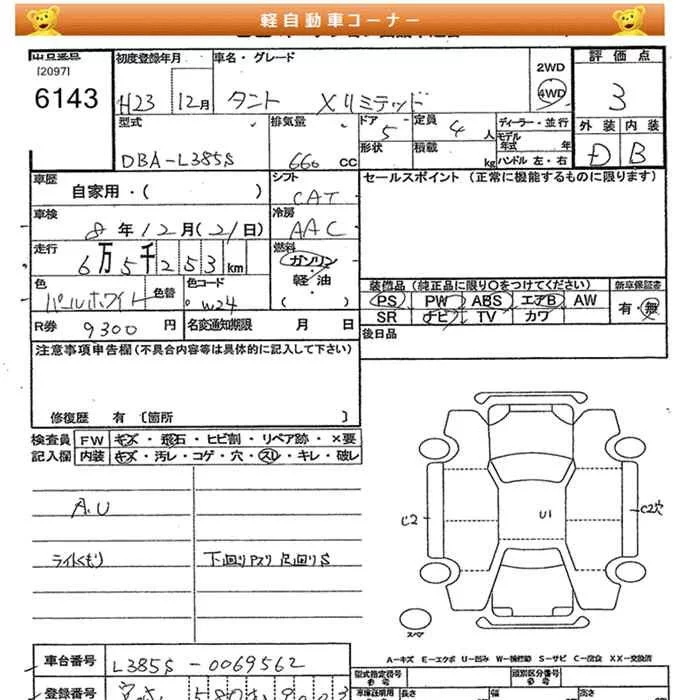 軽自動車コーナー
出品番号 初度登録年月 車名・グレード 2WD 評価点
[2097]
6143 H23 12月 タント Xリミテッド 4WD 3
型式 排気量 ドア 5 定員 4 人 ディーラー・並行 外装 内装
モデル年式 年
DBA-L385S 660 cc 形状 積載 kg ハンドル 左・右 D B
車歴 シフト セールスポイント (正常に機能するものに限ります)
自家用・( ) CAT
車検 8年12月(21日) 冷房 AAC
走行 6万5千253km 燃料 ガソリン
軽油
( )
色 パールホワイト 色替 色コード W24 装備品 (純正品に限り○をつけてください) 新車保証書
PS PW ABS エアB AW 有・無
R券 9300円 名変通知期限 月 日 SR ナビ TV カワ
後日品
注意事項申告欄(不具合内容等は具体的に記入して下さい)
修復歴 有 〔箇所 〕
検査員 FW キズ・飛石・ヒビ割・リペア跡・×要
記入欄 内装 キズ・汚レ・コゲ・穴・スレ・キレ・破レ
A.U
U1
C2穴
ライトくもり 下回りアスリ 足回りS
スペア
A-キズ E-エクボ U-凹み W-補修跡 S-サビ C-腐食 XX-交換済
車台番号 L385S-0069562
型式指定番号 類別区分番号
登録番号 580
長さ 幅 高さ